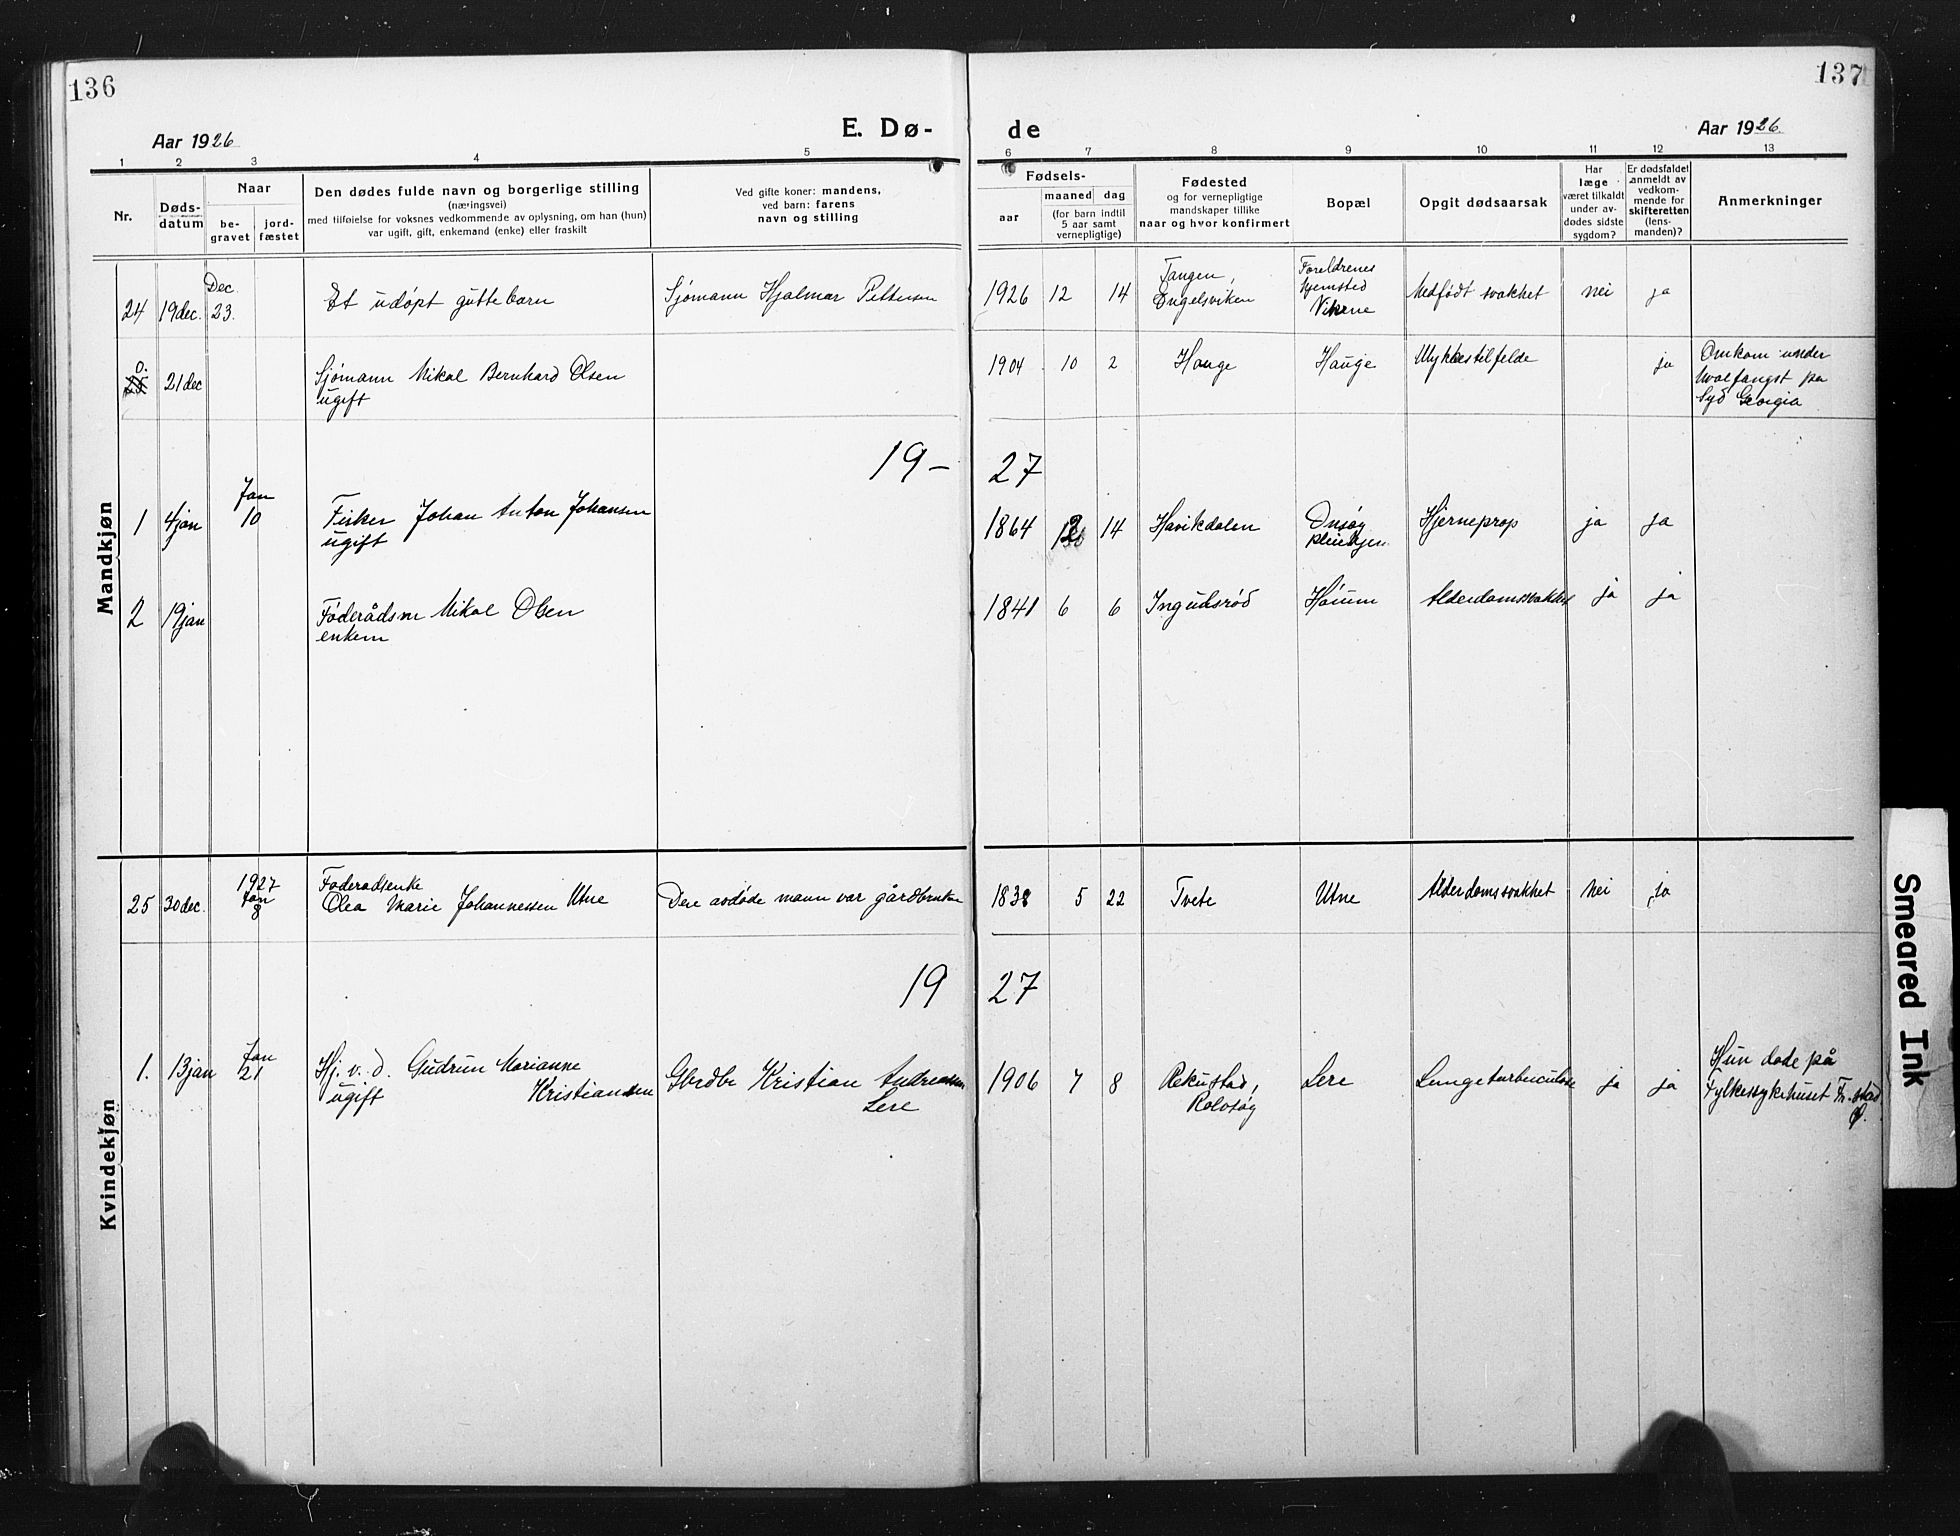 136
137
Aar 1926
E. Dø-
de
Aar 1926
1 2 3 4 5 6 7 8 9 10 11 12 13
Nr.
Døds-
datum
Naar
be-
gravet
jord-
fæstet
Den dødes fulde navn og borgerlige stilling
(næringsvei)
med tilføielse for voksnes vedkommende av oplysning, om han (hun)
var ugift, gift, enkemand (enke) eller fraskilt
Ved gifte koner: mandens,
ved barn: farens
navn og stilling
Fødsels-
aar
maaned
dag
(for barn indtil
5 aar samt
vernepligtige)
Fødested
og for vernepligtige
mandskaper tillike
naar og hvor konfirmert
Bopæl
Opgit dødsaarsak
Har
læge
været tilkaldt
under av-
dødes sidste
sygdom?
Er dødsfaldet
anmeldt av
vedkom-
mende for
skifteretten
(lens-
manden)?
Anmerkninger
Mandkjøn
24 19 dec. Dec. 23.
Et udøpt guttebarn
Sjømann Hjalmar Pettersen
1926 12 14
Tangen,
Engelsviken
Foreldrenes
hjemsted
Vikene
Medfødt svakhet
nei
ja
0. 21 dec
Sjømann Mikal Bernhard Olsen
ugift
1904 10 2
Hauge
Hauge
Ulykkestilfelde
ja
Omkom under
hvalfangst på
Syd Georgia
19 – 27
1 4 jan Jan 10
Fisker Johan Anton Johansen
ugift
1864 14
Havikdalen
Onsøy
pleiehjem
Hjerneprop
ja
ja
2 19 jan
Føderådsm Mikal Olsen
enkem
1841 6 6
Ingulsrød
Høium
Alderdomssvakhet
ja
ja
25 30 dec. 1927 Jan 8
Føderadsenke
Olea Marie Johannessen Utne
Den avdøde mann var gårdbruker
1838 5 22
Tvete
Utne
Alderdomssvakhet
nei
ja
19 27
Kvindekjøn
1. 13 jan Jan 21
Hj. v. d. Gudrun Marianne
Kristiansen
ugift
Gbrdbr Kristian Andreassen
Lere
1906 7 8
Rekustad,
Rolvsøy
Lere
Lungetuberculose
ja
ja
Hun døde på
Fylkessykehuset Fr.stad
Ø.
Smeared Ink